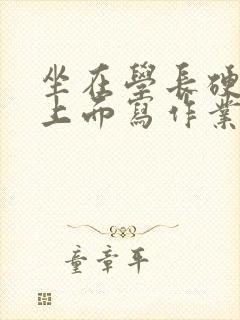 坐在學長硬
上面寫作業
童章平